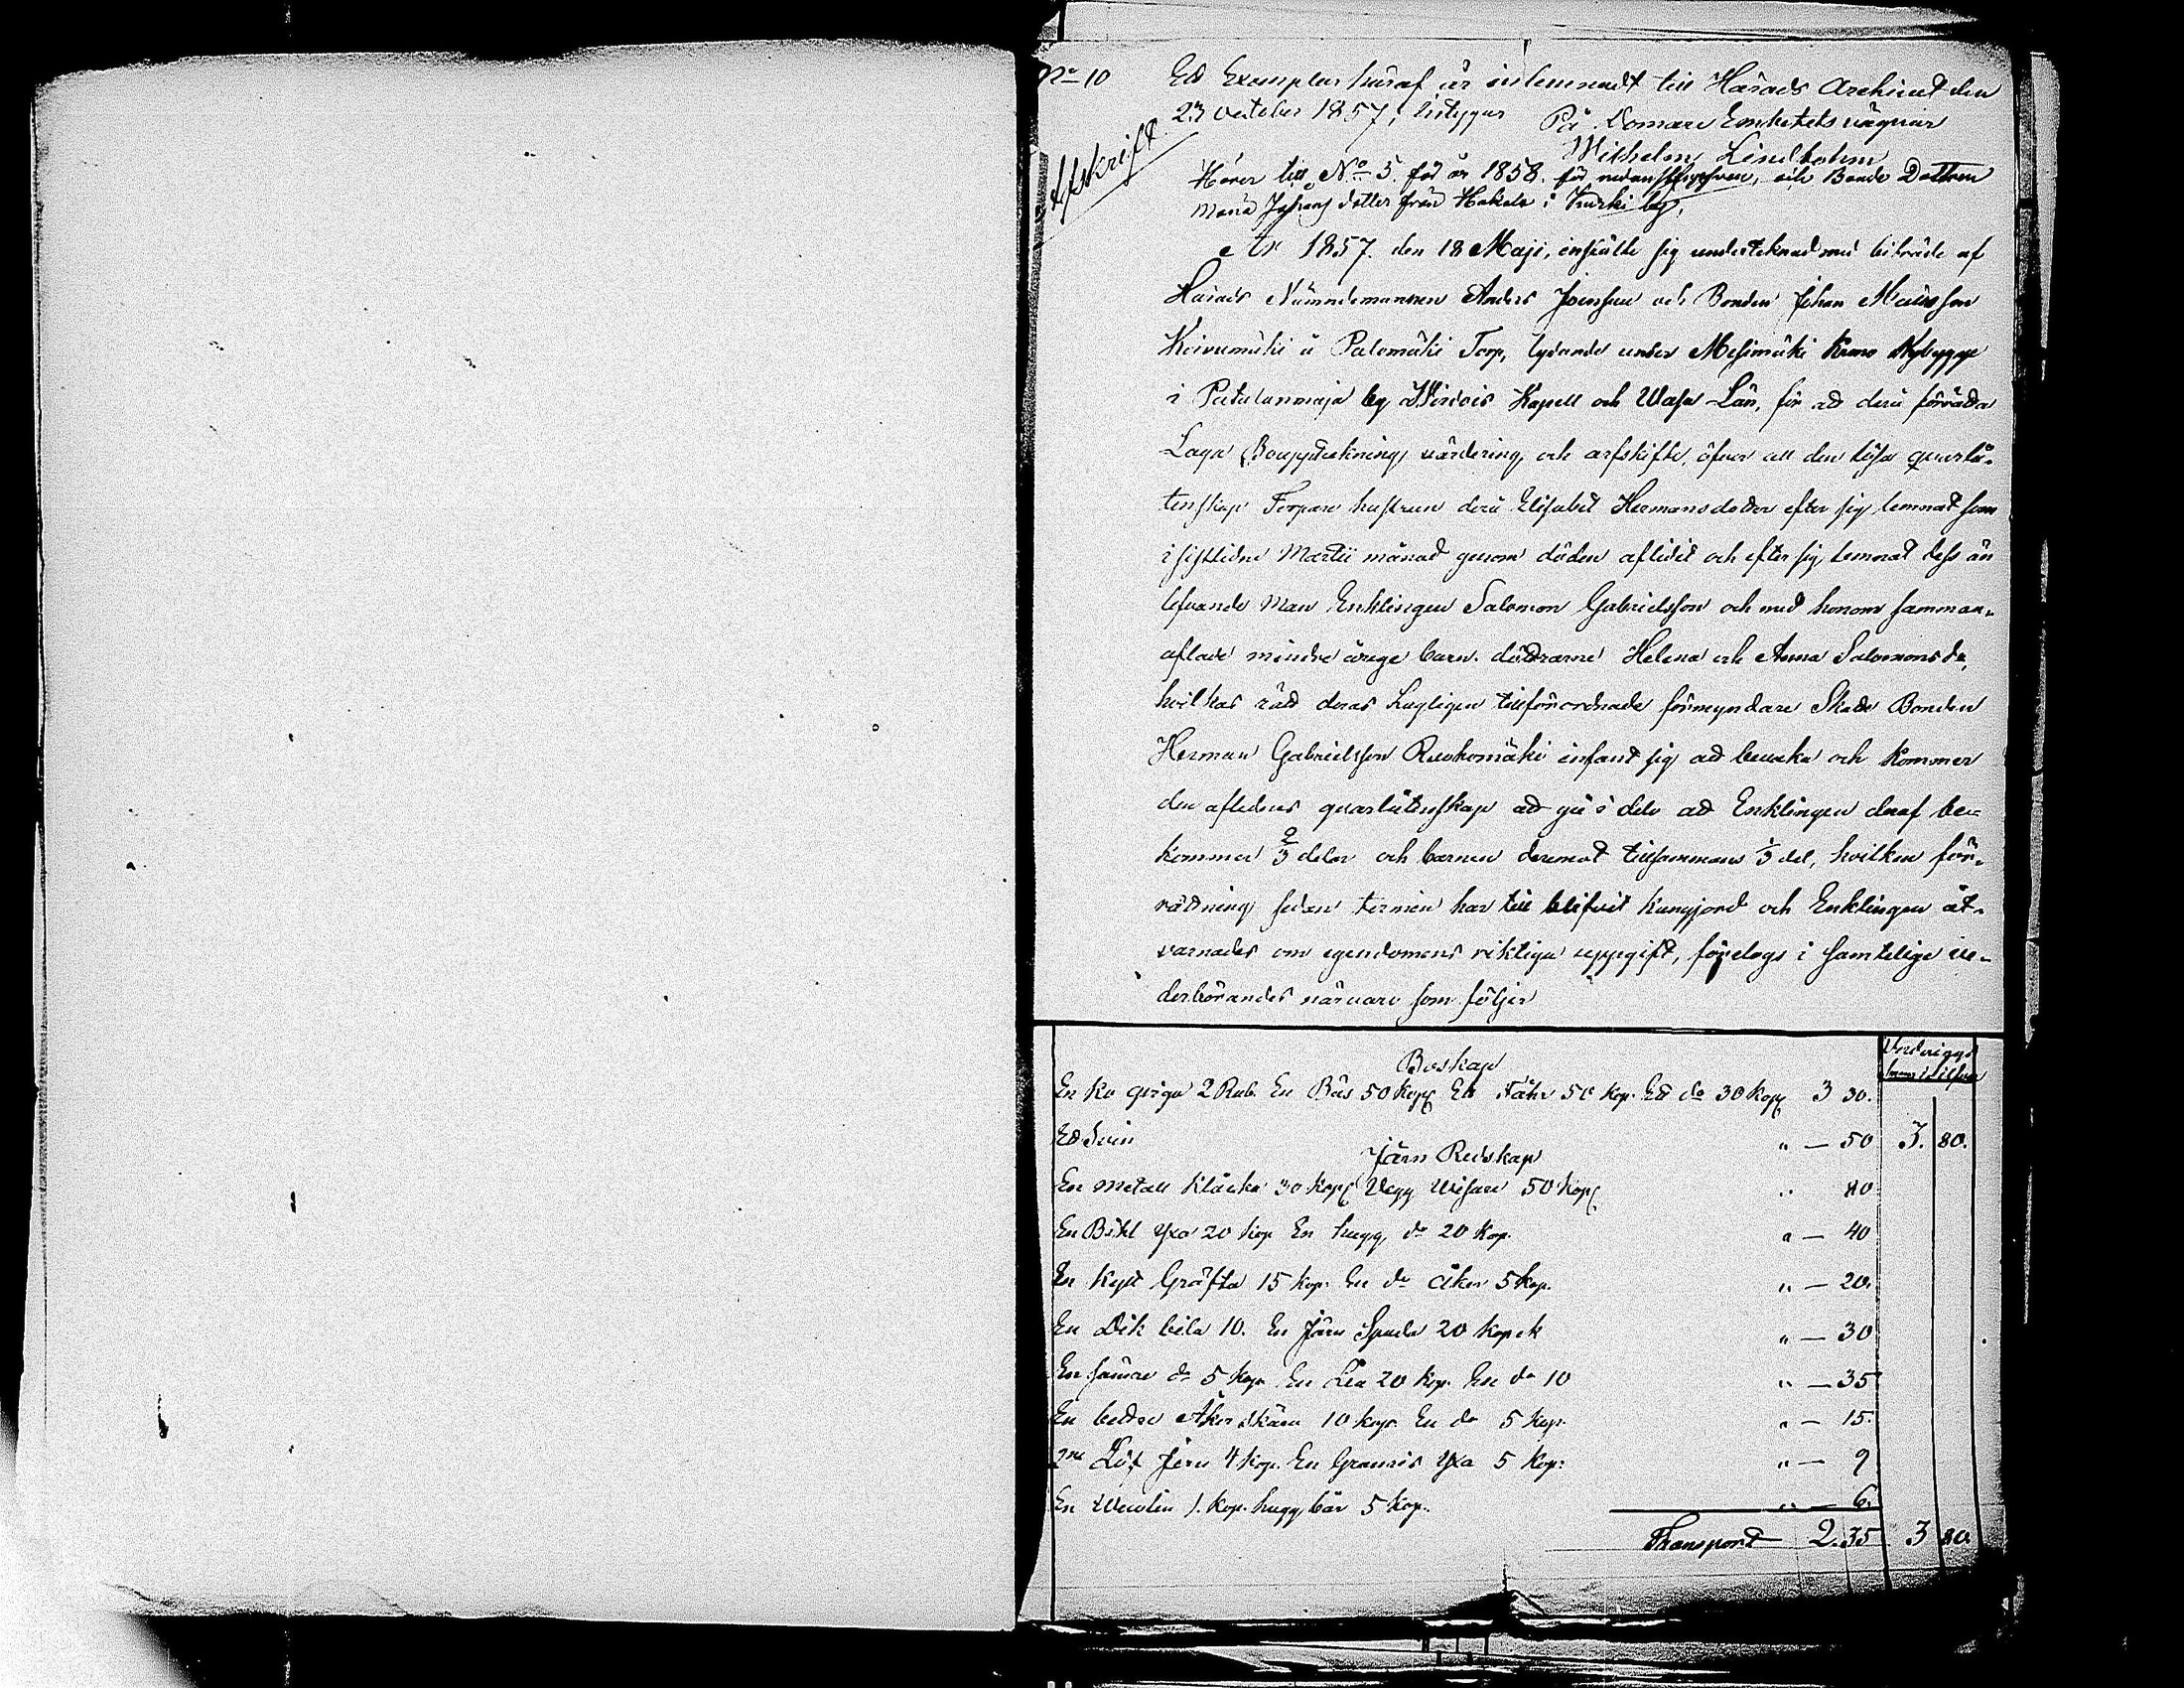 No 10
Ett Exemplar häraf är inlemnadt till Härads Archivet den
23 october 1857, betygar
På Domare Embetets vägnar
Wilhelm Lindholm
Afskrift
Hörer till No 5. för år 1858. för och Bonde Dottren
Maria dotter från Hakola i Kurki by.
År 1857. den 18 Maji, instälte sig undertecknad med biträde af
Härads Nämndemannen Anders Joensuu och Bonden Johan Mattsson
Koivumäki å Palomäki Torp, lydande under Mesimäki Krono Nybygge
i by Wirdois Kapell och Wasa Län, för att derå förrätta
Laga Bouppteckning värdering, och arfskifte, öfver all den lösa qvarlå-
tenskap Torpare hustrun derå Elisabet Hermansdotter efter sig lemnat som
i sistledne Martii månad genom döden aflidit och efter sig lemnat dess än
lefvande man Enklingen Salomon Gabrielsson och med honom samman-
aflade mindre åriga barn. döttrarne Helena och Anna Salomonsdr,
hvilkas rätt deras Lagligen tillförordnade förmyndare Skatte Bonden
Herman Gabrielsson Ruokomäki infant sig att bevaka och kommer
den aflednes qvarlåtenskap att gå i delo att Enklingen deraf be-
kommer 2/3 delar och barnen deremot tillsammans 1/3 del, hvilken för-
rättning sedan termin här till blifvit kungjord och Enklingen åt-
varnades om egendomens riktiga uppgift, företogs i samtelige ve-
derbörandes närvaro som följer
Boskap
En Ko qviga 2 Rub. En Bås 50 Kop Ett Fåhr 50 Kop. Ett do 30 Kop 3 30.
Ett Svin " — 50 3. 80.
Järn Redskap
En metall Klåcka 30 Kop Vägg Visare 50 Kop " 80
En Bihl Yxa 20 Kop En hugg do 20 Kop. " — 40
En Kytt Gräfta 15 Kop. En do åker 5 Kop. " — 20.
En Dik bila 10. En Järn Spada 20 Kopek " — 30
En sämre do 5 Kop En Lia 20 Kop. En do 10 " — 35
En bettre Åker Skära 10 Kop. En do 5 Kop. " — 15.
2ne Löf Jern 4 Kop. En Granris Yxa 5 Kop: " — 9
En 1. Kop. hugg bår 5 Kop. " — 6.
Transport 2.35 3 80.